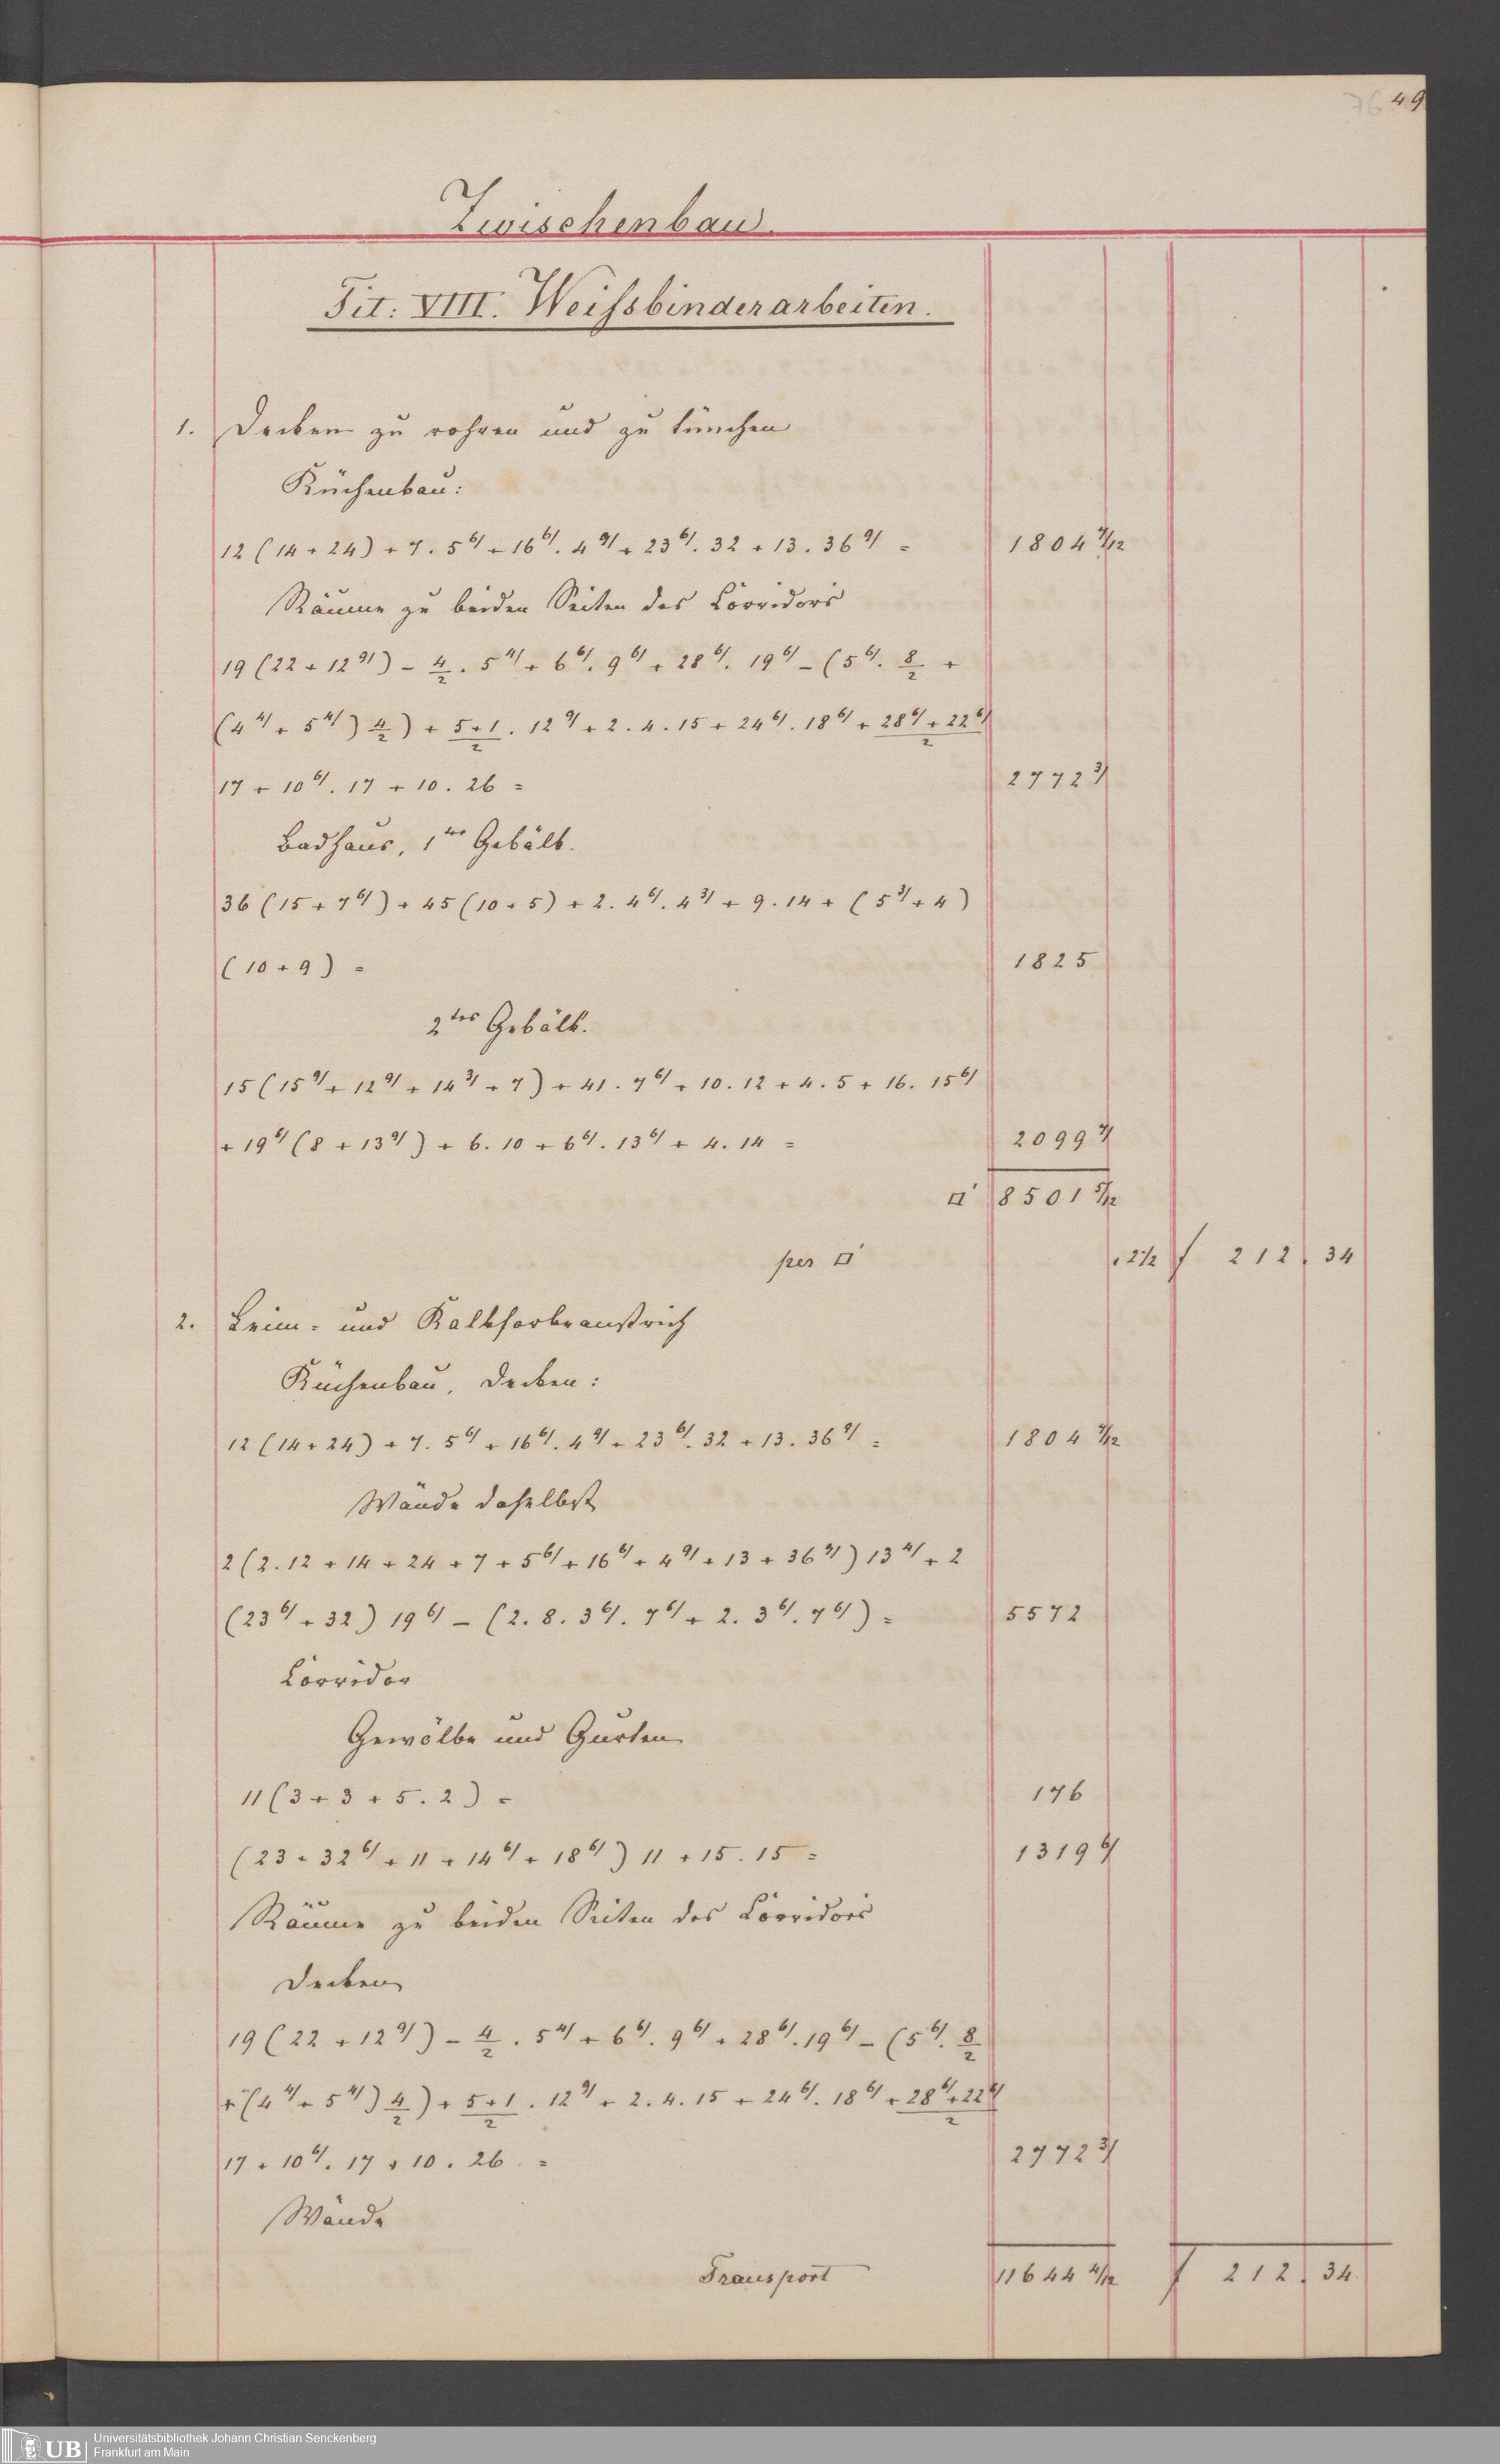 76 49
Zwischenbau.
Tit: VIII. Weiſsbinderarbeiten.
1. Decken zu rohren und zu tünchen
Küchenbau:
12 (14 + 24) + 7 . 5 6/ + 16 6/ . 4 9/ + 23 6/ . 32 + 13 . 36 9/ = 1804 7/12
Räume zu beiden Seiten des Corridors
19 (22 + 12 9/) - 4/2 . 5 4/ + 6 6/ . 9 6/ + 28 6/ . 19 6/ - (5 6/ . 8/2 +
(4 4/ + 5 4/) 4/2) + 5+1/2 . 12 9/ + 2 . 4 . 15 + 24 6/ . 18 6/ + 28 6/ + 22 6/ /2
17 + 10 6/ . 17 + 10 . 26 = 2772 3/
Badhaus, 1tes Gebälk.
36 (15 + 7 6/) + 45 (10 + 5) + 2 . 4 6/ . 4 3/ + 9 . 14 + (5 3/ + 4)
(10 + 9) = 1825
2tes Gebälk.
15 (15 9/ + 12 9/ + 14 3/ + 7) + 41 . 7 6/ + 10 . 12 + 4 . 5 + 16 . 15 6/
+ 19 6/ (8 + 13 9/) + 6 . 10 + 6 6/ . 13 6/ + 4 . 14 = 2099 7/
□' 8501 5/12
per □' . 2 1/2 f 212 . 34
2. Leim- und Kalkfarbeanstrich
Küchenbau, Decken:
12 (14 + 24) + 7 . 5 6/ + 16 6/ . 4 9/ + 23 6/ . 32 + 13 . 36 9/ = 1804 7/12
Wände daselbst
2 (2 . 12 + 14 + 24 + 7 + 5 6/ + 16 6/ + 4 9/ + 13 + 36 9/) 13 4/ + 2
(23 6/ + 32) 19 6/ - (2 . 8 . 3 6/ . 7 6/ + 2 . 3 6/ . 7 6/) = 5572
Corridor
Gewölbe und Gurten
11 (3 + 3 + 5 . 2) = 176
(23 + 32 6/ + 11 + 14 6/ + 18 6/) 11 + 15 . 15 = 1319 6/
Räume zu beiden Seiten des Corridors
Decken
19 (22 + 12 9/) - 4/2 . 5 4/ + 6 6/ . 9 6/ + 28 6/ . 19 6/ - (5 6/ . 8/2
+ (4 4/ + 5 4/) 4/2) + 5+1/2 . 12 9/ + 2 . 4 . 15 + 24 6/ . 18 6/ + 28 6/ + 22 6/ /2
17 + 10 6/ . 17 + 10 . 26 . = 2772 3/
Wände
Transport 11644 4/12 f 212 . 34
UB Universitätsbibliothek Johann Christian Senckenberg
Frankfurt am Main